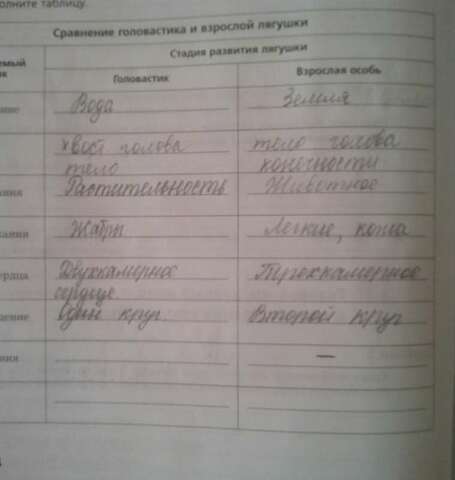 олните таблицу.
Сравнение головастика и взрослой лягушки
емый
ик
Стадия развития лягушки
Головастик
Взрослая особь
ние
Вода
Земля
хвост голова
тело
тело голова
конечности
ания
Растительность
Животное
хания
Жабры
Легкие, кожа
ердца
Двухкамерное
сердце.
Трехкамерное
щение
Один круг
Второй круг
ния
—